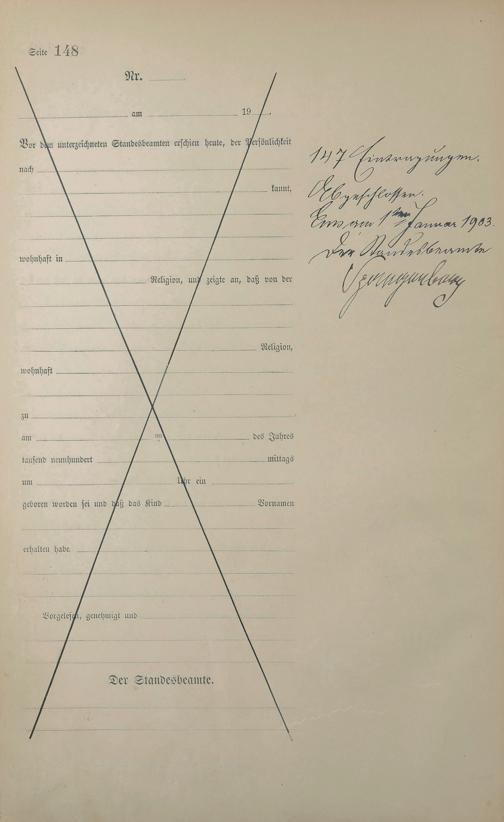 Seite 148
Nr.
am 19
Vor dem unterzeichneten Standesbeamten erschien heute, der Persönlichkeit
nach
kannt,
wohnhaft in
Religion, und zeigte an, daß von der
Religion,
wohnhaft
zu
am des Jahres
tausend neunhundert mittags
um Uhr ein
geboren worden sei und daß das Kind Vornamen
erhalten habe
Vorgelesen, genehmigt und
Der Standesbeamte.
147 Eintragungen.
Abgeschlossen.
Ems am 1ten Januar 1903.
Der Standesbeamte